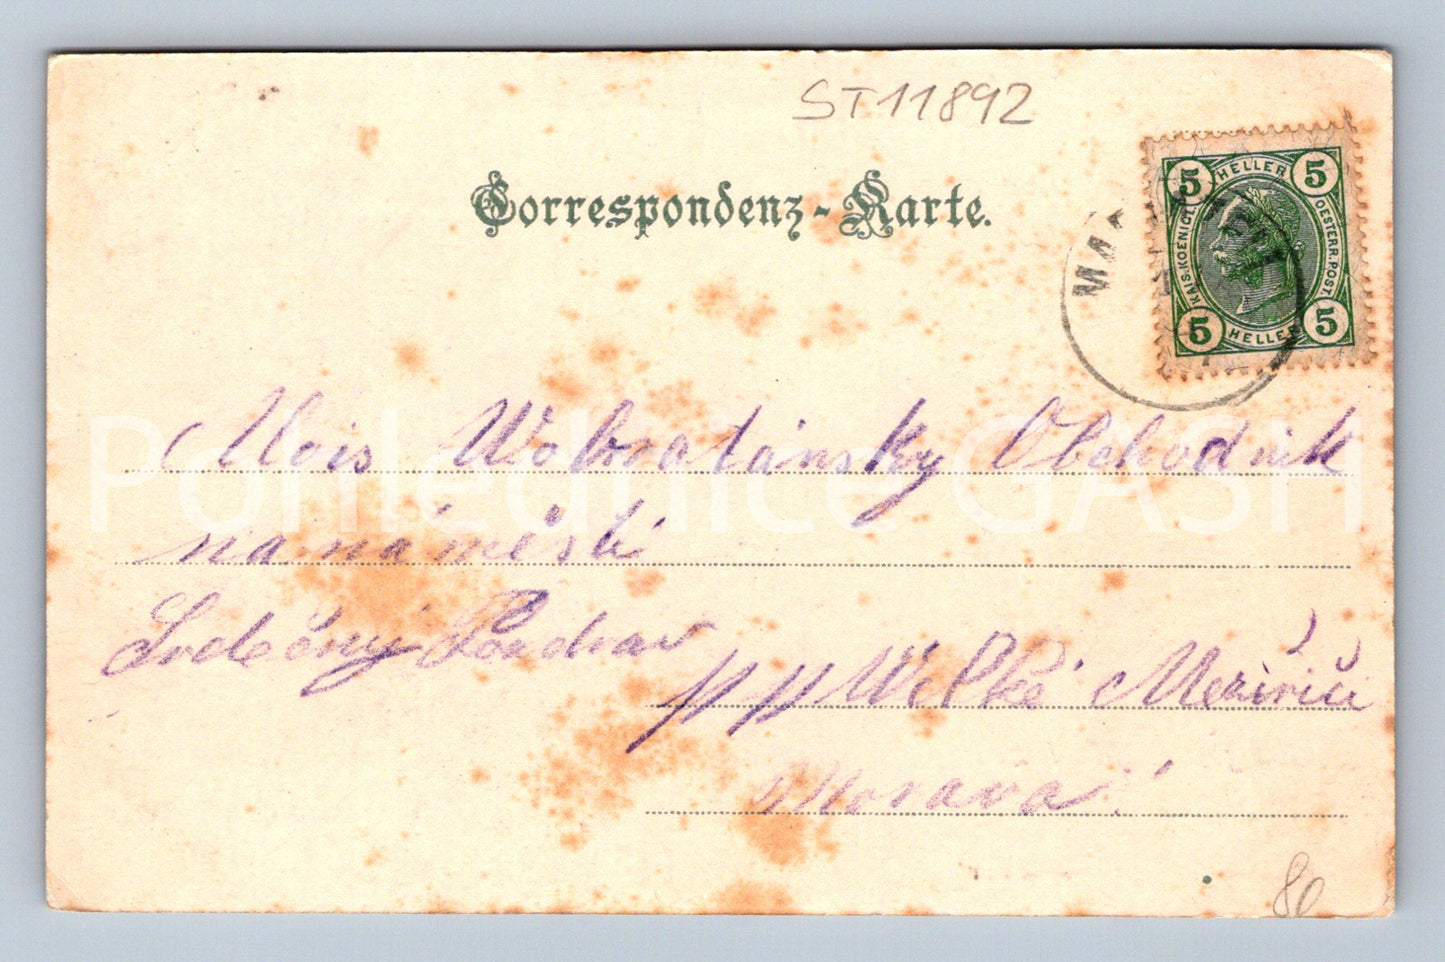 ST11892
Correspondenz-Karte.
5 HELLER 5
KAIS. KOENIGL. OESTERR. POST.
5 HELLER 5
MA
Alois Wobratánsky Obchodnik
na náměsti
Srdečný Pozdrav
Welké Meziřiči
Morava!
Pohlednice GASH
80